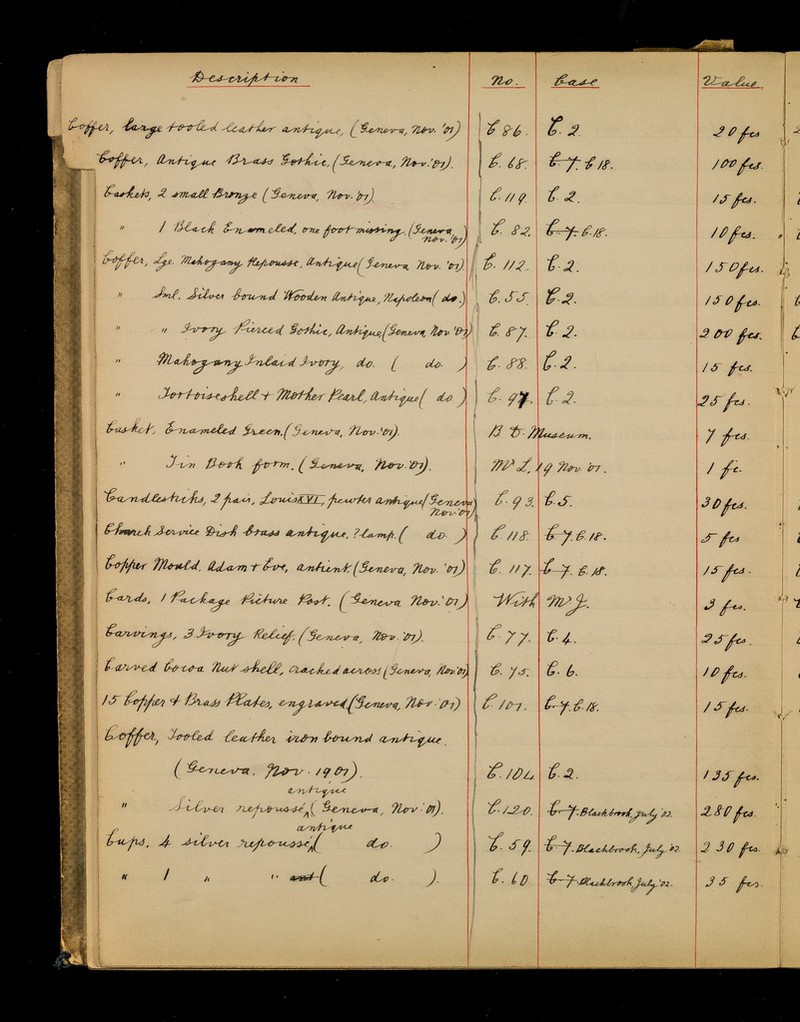 Description No. Case Value.
Coffer, large tooled leather antique, (Geneva, Nov. '01) C 86. C. 2. 20 fcs
Coffer, Antique Brass Gothic, (Geneva, Nov. '01). C. 68. C. 7. C. 18. 100 fcs.
Caskets, 2 small Bronze (Geneva, Nov. '01). C. 119. C. 2. 15 fcs.
" 1 Black Enameled, one foot missing. (Geneva Nov. '01) C. 82. C. 7. C. 18. 10 fcs.
Coffer, Lge. Mahogany Repousse, Antique (Geneva Nov. '01). C. 112. C. 2. 150 fcs.
" Sml. Silver bound Wooden Antique, Napoleon ( do. ) C. 55. C. 2. 150 fcs.
" " Ivory Pierced Gothic, Antique (Geneva Nov '01) C. 87. C. 2. 200 fcs.
" Mahogany Inlaid Ivory, do. ( do. ) C. 88. C. 2. 15 fcs.
" Tortoiseshell + Mother Pearl, Antique ( do. ) C. 97. C. 2. 25 fcs.
Casket, Enameled Green. (Geneva, Nov. '01). B Museum. 7 fcs.
" Tin Book form. (Geneva, Nov. '01). Mr L, 19 Nov. '01. 1 fc.
Candlesticks, 2 pair, Louis XVI, pewter antique (Geneva Nov. '01) C. 93. C. 5. 30 fcs.
Church Service Dish brass antique. ? lamp. ( do. ) C 118. C. 7. C. 18. 5 fcs
Copper Mould, Adam + Eve, antient. (Geneva, Nov. '01) C. 117. C. 7. C. 18. 15 fcs.
Cards, 1 Package Picture Post. (Geneva Nov. '01) With Mr J. 3 fcs.
Carvings, 3 Ivory Relief. (Geneva, Nov. '01). C. 77. C. 4. 25 fcs.
Carved Cocoa Nut shell, cracked across (Geneva, Nov. '01) C. 75. C. 6. 10 fcs.
15 Copper & Brass Plates, engraved. (Geneva, Nov. '01) C. 101. C. 7. C. 18. 15 fcs.
Coffer, Tooled leather iron bound antique.
(Geneva. Nov. 1901). C. 104 C. 2. 135 fcs.
" Silver repoussé, antique (Geneva, Nov. '01). C. 120. C. 7. Blackbrook, July '02. 280 fcs.
Cups. 4 silver repoussé, antique ( do. ) C. 59. C. 7. Blackbrook, July '02. 230 fcs.
" 1 " " ant ( do. ). C. 60 C. 7 Blackbrook July '02. 35 fcs.